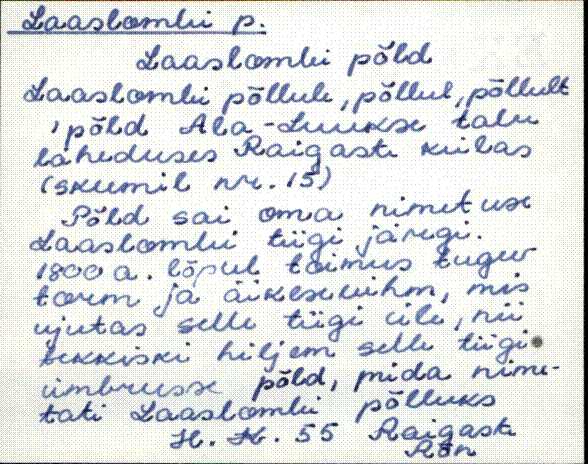 Laaslombi p.
Laaslombi põld
Laaslombi põllule, põllul, põllult
, põld Ala-Luukse talu
läheduses Raigaste külas
(skeemil nr. 15)
Põld sai oma nimetuse
Laaslombi tiigi järgi.
1800 a. lõpul toimus tugev
torm ja äikesevihm, mis
ujutas selle tiigi üle, nii
tekkiski hiljem selle tiigi
ümbrusse põld, mida nime-
tati Laaslombi põlluks
H. K. 55 Raigaste
Rõn